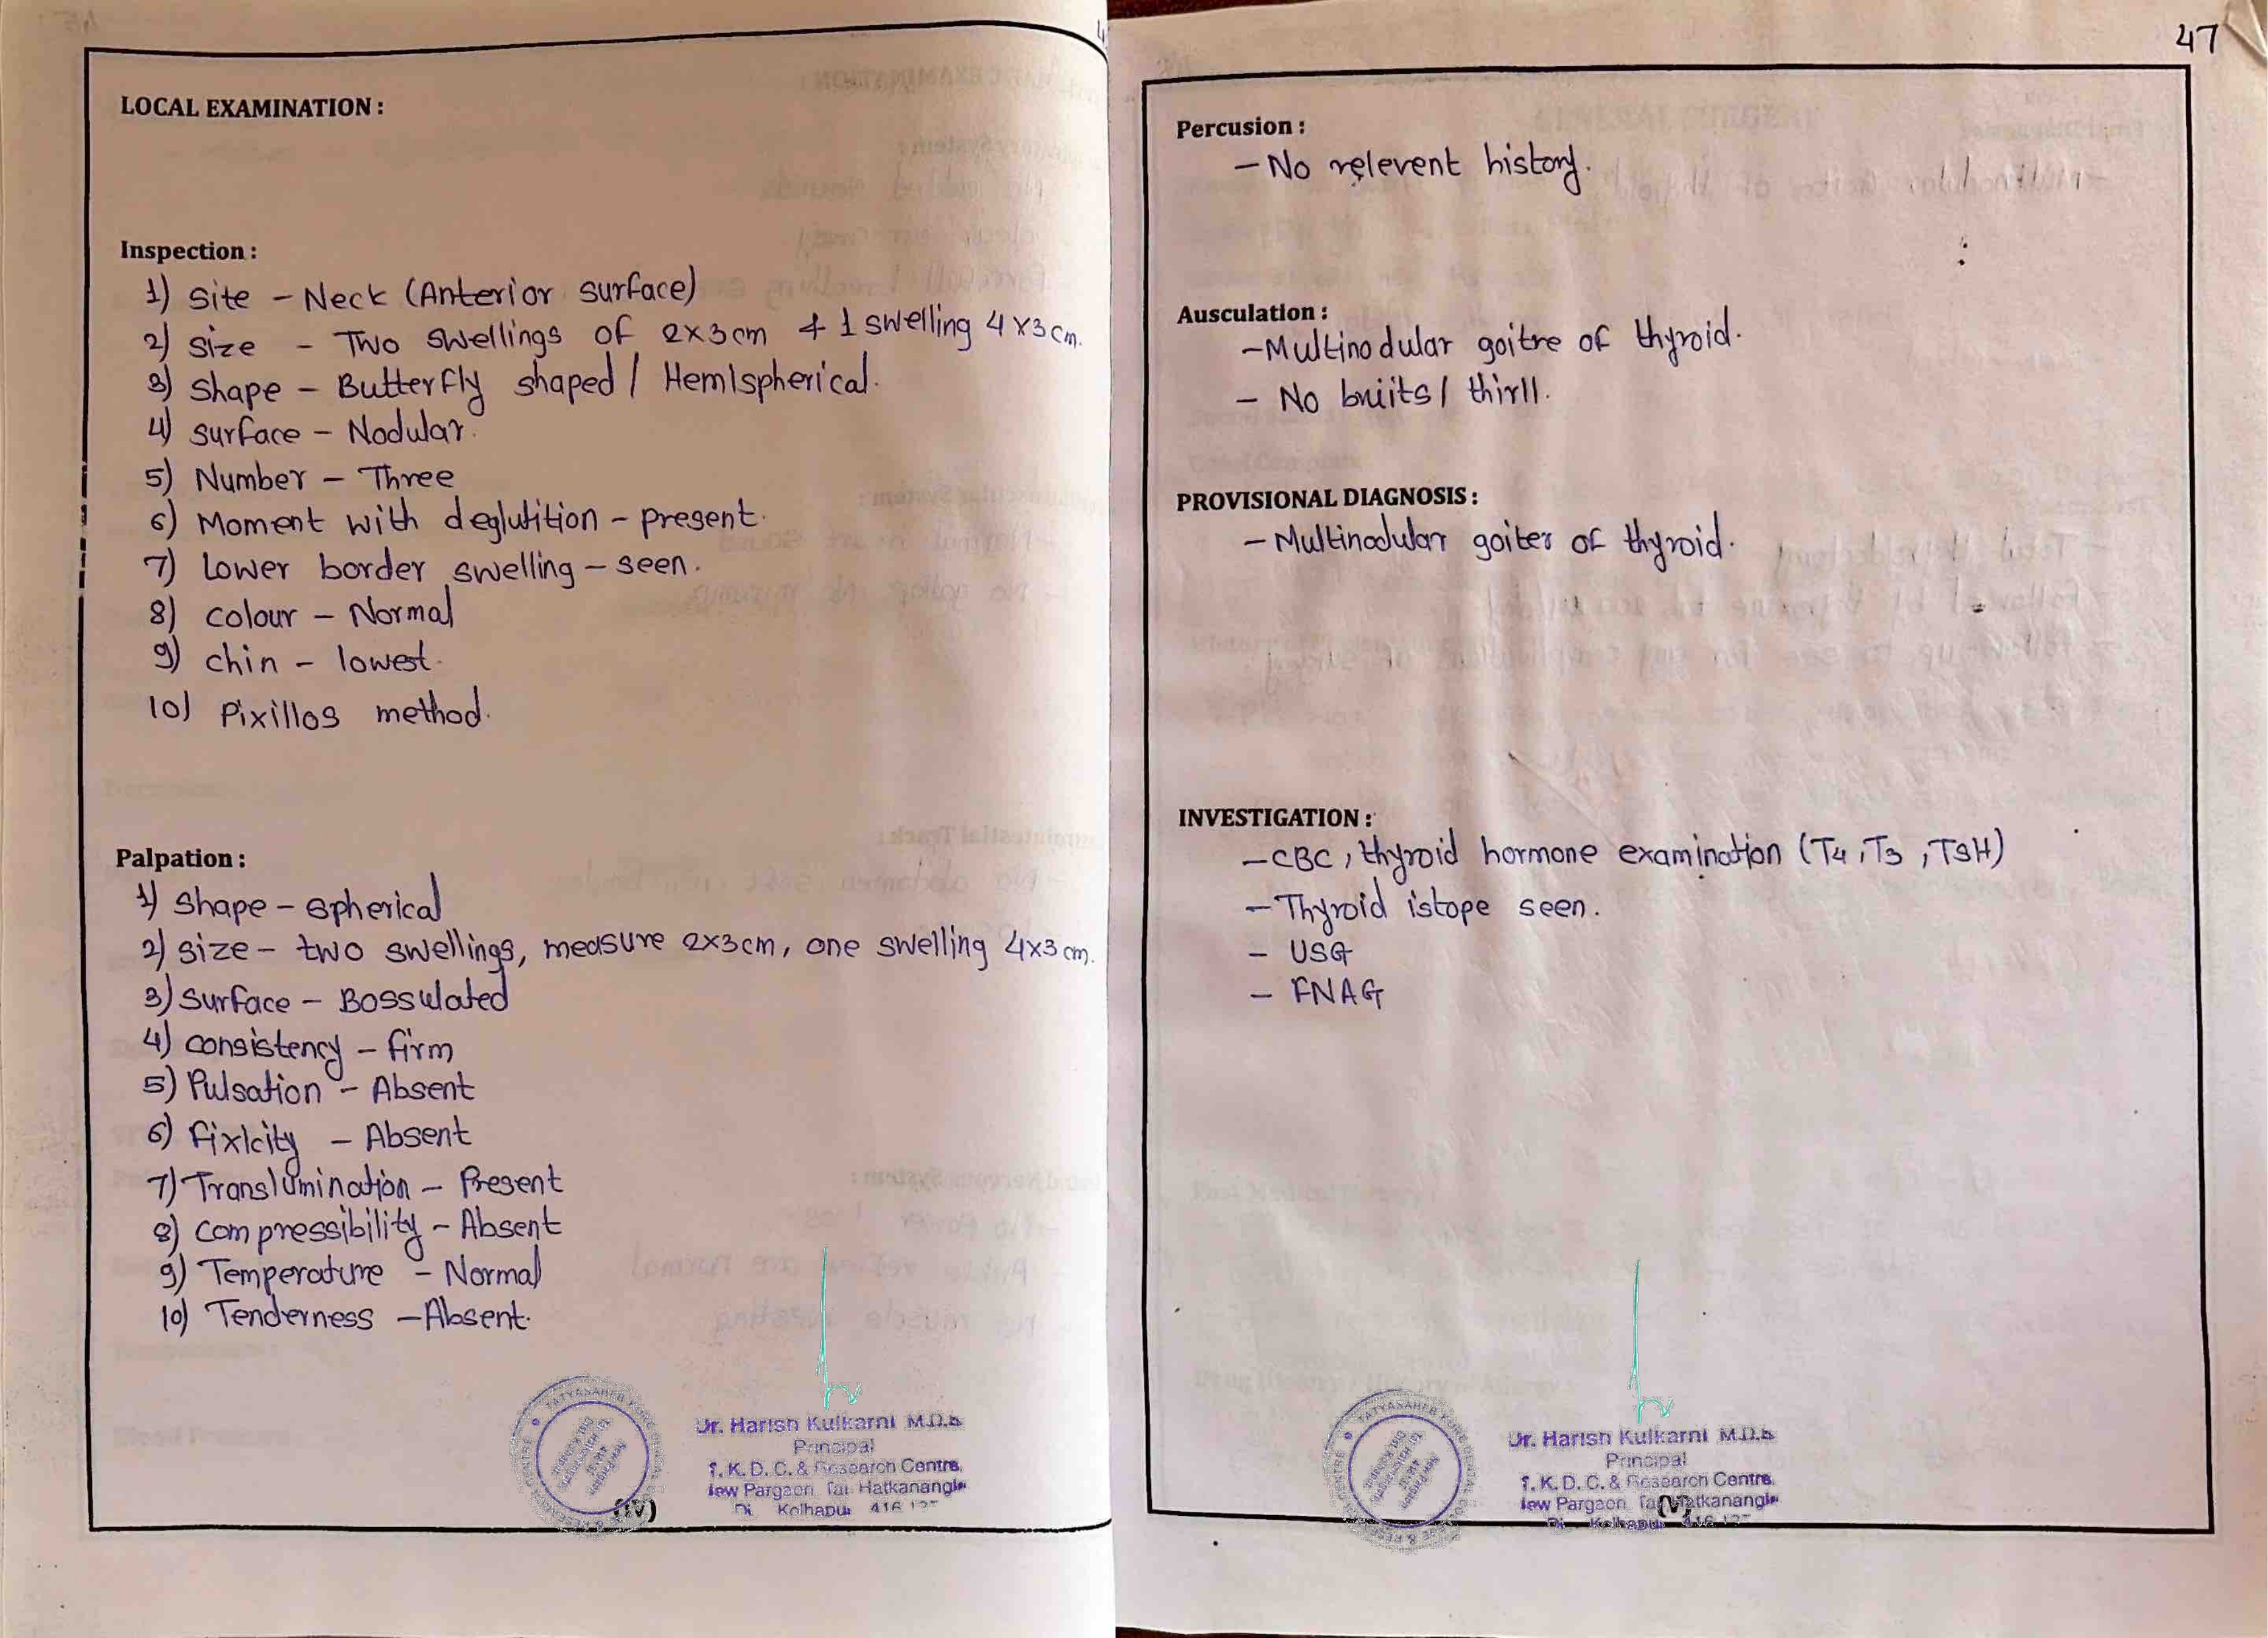 LOCAL EXAMINATION :
Inspection :
1) Site - Neck (Anterior surface)
2) Size - Two swellings of 2x3cm + 1 swelling 4x3cm.
3) Shape - Butterfly shaped / Hemispherical.
4) Surface - Nodular.
5) Number - Three
6) Moment with deglutition - present.
7) Lower border swelling - seen.
8) colour - Normal
9) chin - lowest.
10) Pixillos method.
Palpation :
1) Shape - spherical
2) Size - two swellings, measure 2x3cm, one swelling 4x3cm.
3) Surface - Bossulated
4) consistency - firm
5) Pulsation - Absent
6) fixicity - Absent
7) Translumination - Present
8) compressibility - Absent
9) Temperature - Normal
10) Tenderness - Absent.
Dr. Harish Kulkarni M.D.S
Principal
T. K. D. C. & Research Centre,
New Pargaon, Tal. Hatkanangle
Di. Kolhapur 416
(IV)
47
Percusion :
- No relevent history.
Ausculation :
- Multinodular goitre of thyroid.
- No bruits / thirll.
PROVISIONAL DIAGNOSIS :
- Multinodular goiter of thyroid.
INVESTIGATION :
- CBC, thyroid hormone examination (T4, T3, TSH)
- Thyroid istope seen.
- USG
- FNAG
Dr. Harish Kulkarni M.D.S
Principal
T. K. D. C. & Research Centre,
New Pargaon, Tal. Hatkanangle
Di. Kolhapur 416
(V)